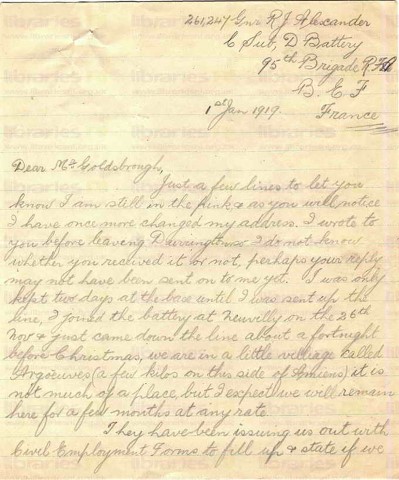 261,247 Gnr R J Alexander
C Sub, D Battery
95th Brigade R.F.A
B. E. F
1st Jan 1919. France
Dear Mr Goldsbrough,
Just a few lines to let you
know I am still in the pink & as you will notice
I have once more changed my address. I wrote to
you before leaving so I do not know
whether you received it or not, perhaps your reply
may not have been sent on to me yet. I was only
kept two days at the base until I was sent up the
line, I joined the battery at Neuvilly on the 26th
Nov & just came down the line about a fortnight
before Christmas, we are in a little village called
Argoeuves (a few kilos on this side of Amiens) it is
not much of a place, but I expect we will remain
here for a few months at any rate
They have been issuing us out with
Civil Employment Forms to fill up & state if we